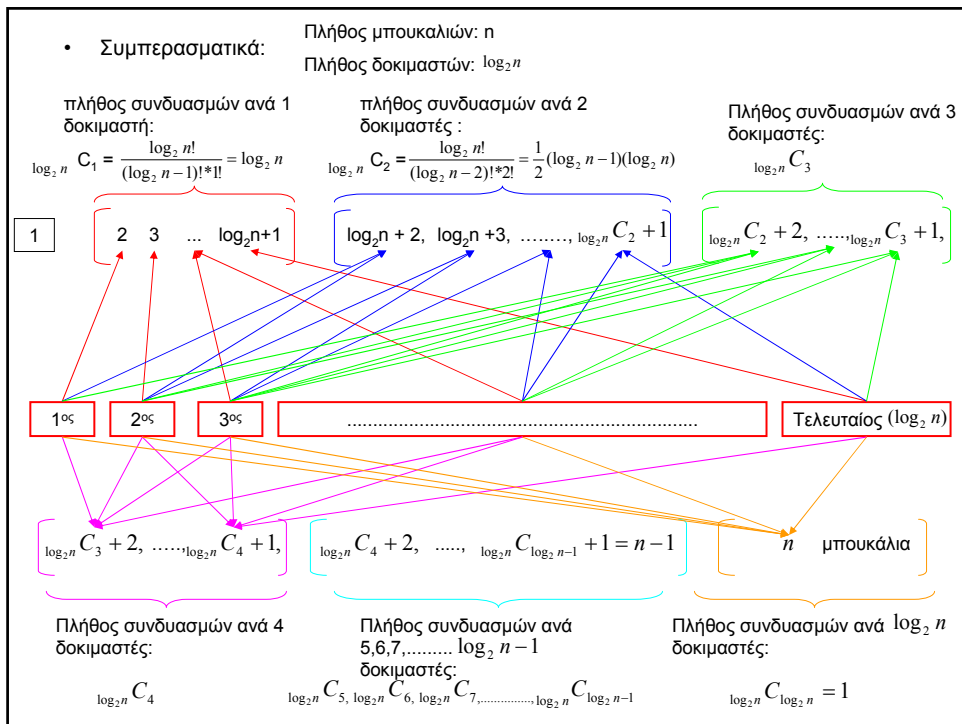 • Συμπερασματικά:
Πλήθος μπουκαλιών: n
Πλήθος δοκιμαστών: log₂n
πλήθος συνδυασμών ανά 1
δοκιμαστή:
log₂ n C₁ = log₂ n! / ((log₂ n−1)!*1!) = log₂ n
πλήθος συνδυασμών ανά 2
δοκιμαστές :
log₂ n C₂ = log₂ n! / ((log₂ n−2)!*2!) = 1/2 (log₂ n−1)(log₂ n)
Πλήθος συνδυασμών ανά 3
δοκιμαστές:
log₂n C₃
1
2 3 ... log₂n+1
log₂n + 2, log₂n +3, ........, log₂n C₂ +1
log₂n C₂ + 2, .....,log₂n C₃ +1,
1ος
2ος
3ος
......................................................................
Τελευταίος (log₂ n)
log₂n C₃ + 2, .....,log₂n C₄ +1,
log₂n C₄ + 2, ....., log₂n C log₂ n−1 +1 = n −1
n μπουκάλια
Πλήθος συνδυασμών ανά 4
δοκιμαστές:
log₂n C₄
Πλήθος συνδυασμών ανά
5,6,7,......... log₂ n −1
δοκιμαστές:
log₂ n C₅, log₂ n C₆, log₂ n C₇,..............., log₂ n C log₂ n−1
Πλήθος συνδυασμών ανά log₂ n
δοκιμαστές:
log₂ n C log₂ n = 1